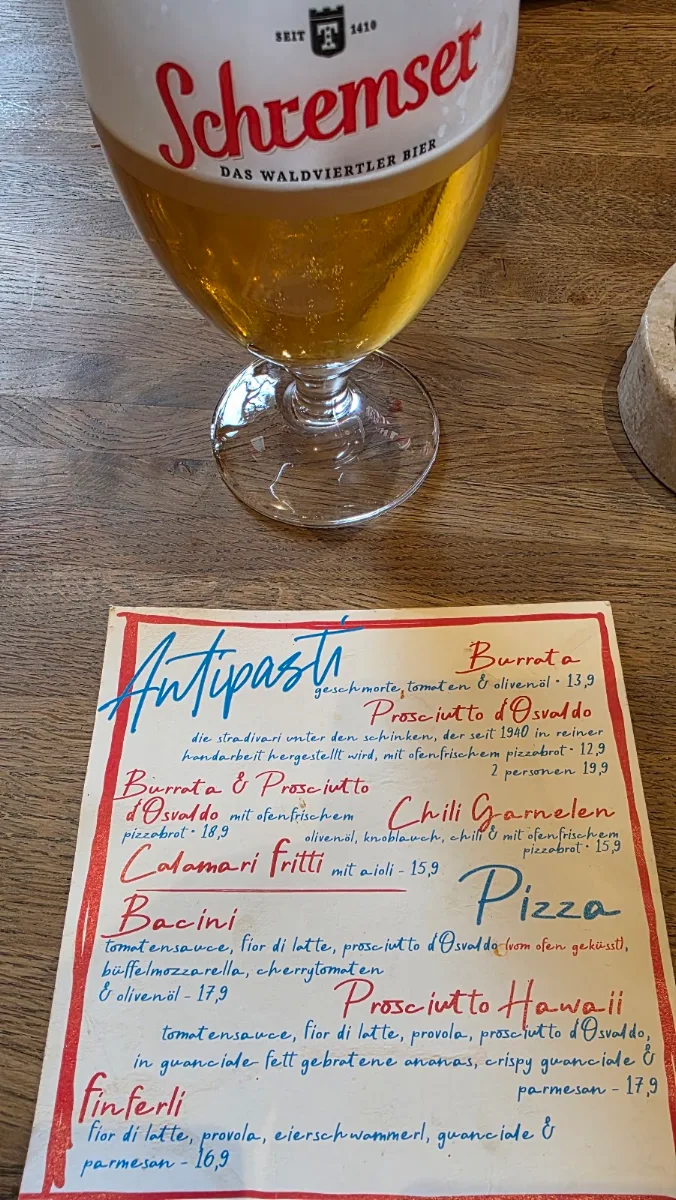 SEIT 1410
Schremser
DAS WALDVIERTLER BIER
Antipasti
Burrata
geschmorte tomaten & olivenöl · 13,9
Prosciutto d'Osvaldo
die stradivari unter den schinken, der seit 1940 in reiner
handarbeit hergestellt wird, mit ofenfrischem pizzabrot · 12,9
2 personen 19,9
Burrata & Prosciutto
d'Osvaldo mit ofenfrischem
pizzabrot · 18,9
Chili Garnelen
olivenöl, knoblauch, chili & mit ofenfrischem
pizzabrot · 15,9
Calamari fritti mit aioli - 15,9
Pizza
Bacini
tomatensauce, fior di latte, prosciutto d'Osvaldo (vom ofen geküsst),
büffelmozzarella, cherrytomaten
& olivenöl - 17,9
Prosciutto Hawaii
tomatensauce, fior di latte, provola, prosciutto d'Osvaldo,
in guanciale fett gebratene ananas, crispy guanciale &
parmesan - 17,9
finferli
fior di latte, provola, eierschwammerl, guanciale &
parmesan - 16,9